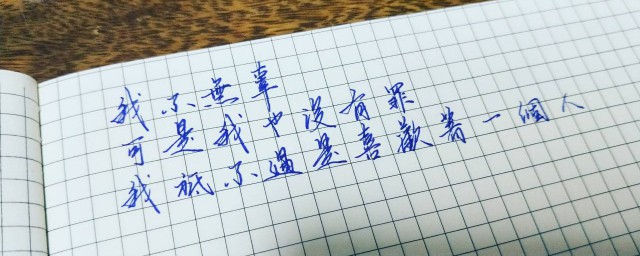 我不無辜
可是我也沒有罪
我祗不過是喜歡著一個人